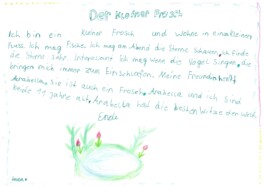 Der kleiner Frosch
Ich bin ein kleiner Frosch und wohne in einem kleinen
Fluss. Ich mag Fische. Ich mag am Abend die Sterne schauen, ich finde
die Sterne sehr interessant. Ich mag wenn die Vögel singen, die
bringen mich immer zum Einschlafen. Meine Freundin heißt
Arabella, sie ist auch ein Frosch. Arabella und ich sind
beide 11 Jahre alt. Arabella hat die besten Witze der Welt.
Ende